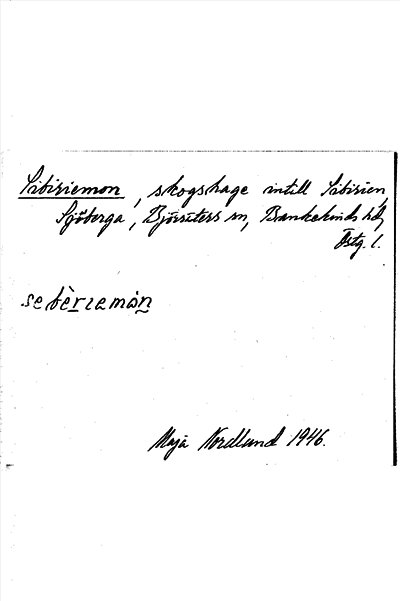 Sibiriemon, skogshage intill Sibirien,
Sjöberga, Björsäters sn, Bankekinds hd,
Östg. l.
sebèrɪemån
Maja Nordlund 1946.